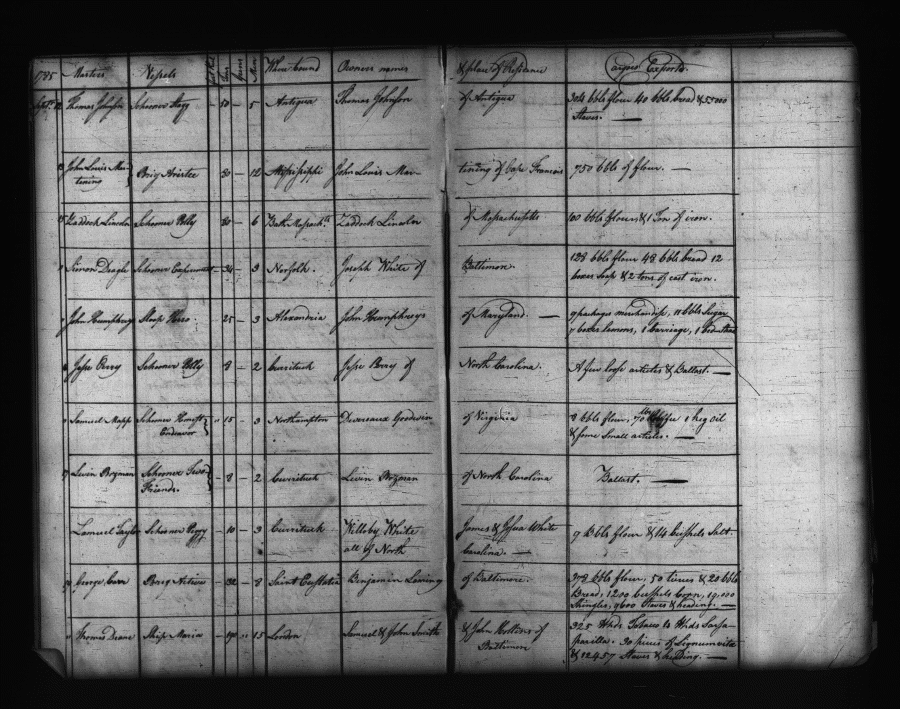 1785 Masters Vessels Tons Guns Men Where bound Owners names & place of Residence Cargoes Exports.
Sept. 12 Thomas Johnson Schooner Stagg 50 — 5 Antigua Thomas Johnson of Antigua 304 bbls flour 40 bbls bread & 55000
Staves. —
John Louis Mar- Brig Aristee 80 — 12 Missisippi John Louis Mar- tining of Cape Francois 750 bbls of flour. —
tining
15 Zaddock Lincoln Schooner Polly 30 — 6 Bath Massach.ts Zaddock Lincoln of Massachusetts 100 bbls flour, & 1 Ton of iron.
Simon Deagle Schooner Experiment — 34 — 3 Norfolk. Joseph White of Baltimore. 128 bbls flour 48 bbls bread 12
boxes soap & 2 tons of cast iron.
John Humphreys Sloop Hero. — 25 — 3 Alexandria John Humphreys of Maryland. — 9 packages merchandise, 11 bbls Sugar
9 boxes lemons, 1 Carriage, 1
Jesse Perry Schooner Polly 8 — 2 Currituck Jesse Perry of North Carolina. A few loose articles & Ballast. —
Samuel Mapp Schooner Honest 15 — 3 Northampton Devereaux Goodwin of Virginia 8 bbls flour, 1 keg oil
Endeavor & some Small articles. —
Levin Bozman Schooner Two — 8 — 2 Currituck Levin Bozman of North Carolina Ballast. —
Friends.
Lemuel Taylor Schooner Peggy — 10 — 3 Currituck Willoby White James & Joshua White 9 Bbls flour & 114 bushels Salt.
all of North Carolina. —
George Carr Brig — 32 — 8 Saint Eustatia Benjamin of Baltimore. 378 bbls flour, 50 tierces & 20 bbls
Bread, 1200 bushels Corn, 19,000
Shingles, 9600 Staves & heading. —
Thomas Deane Ship Maria — 15 London Samuel & John Smith & John Hollins of 325 Hhds Tobacco 10 Hhds Sarsa-
Baltimore parilla. 30 pieces of Lignumvita
& 12457 Staves & heading. —